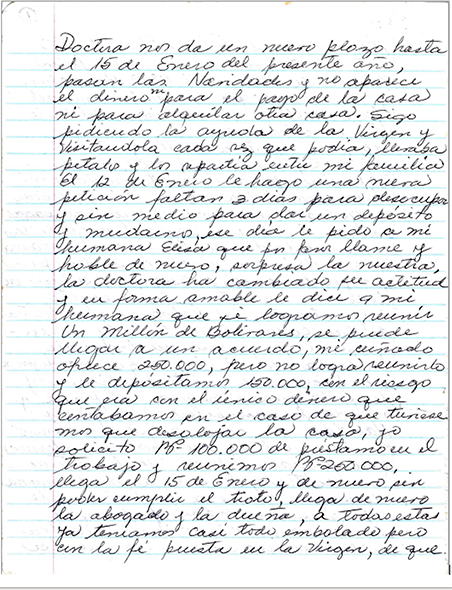 Doctora nos da un nuevo plazo hasta
el 15 de Enero del presente año,
pasan las Navidades y no aparece
el dinero para el pago de la casa
ni para alquilar otra casa. Sigo
pidiendo la ayuda de la Virgen y
visitandola cada vez que podia, llevaba
petalos y los repartia entre mi familia
El 12 de Enero le hago una nueva
petición faltan 3 dias para desocupar
y sin medio para dar un depósito
y mudarnos, ese dia le pido a mi
hermana Elisa que por favor llame y
hable de nuevo, sorpresa la nuestra,
la doctora ha cambiado su actitud
y en forma amable le dice a mi
hermana que si logramos reunir
Un Millón de Bolivares, se puede
llegar a un acuerdo, mi cuñado
ofrece 250.000, pero no logra reunirlo
y le depositamos 150.000, con el riesgo
que era con el único dinero que
contabamos en el caso de que tuviese
mos que desalojar la casa, yo
solicito Bs 100.000 de préstamo en el
trabajo y reunimos Bs 250.000,
llega el 15 de Enero y de nuevo sin
poder cumplir el trato, llega de nuevo
la abogado y la dueña, a todas esta
ya teniamos casi todo embalado pero
con la fé puesta en la Virgen, de que